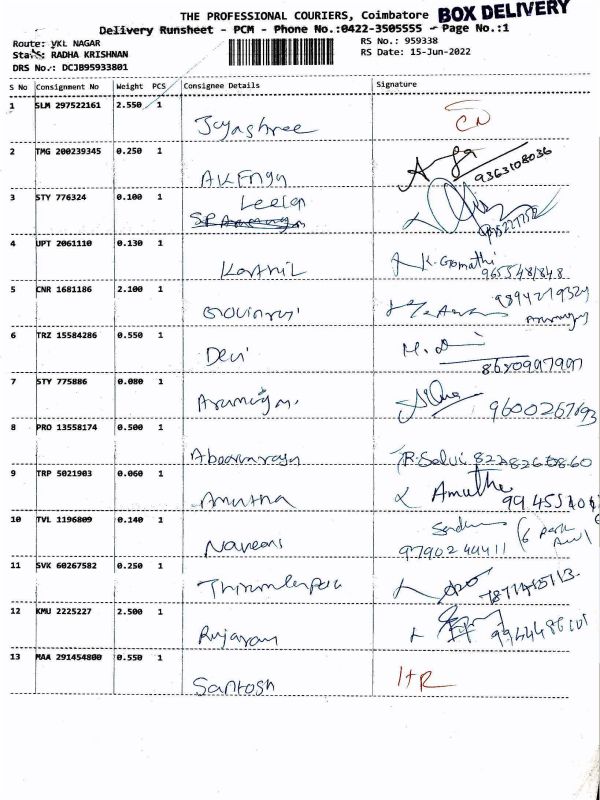 THE PROFESSIONAL COURIERS, Coimbatore BOX DELIVERY
Delivery Runsheet - PCM - Phone No.:0422-3505555 - Page No.:1
Route: VKL NAGAR RS No.: 959338
Staff: RADHA KRISHNAN RS Date: 15-Jun-2022
DRS No.: DCJB95933801
S No Consignment No Weight PCS Consignee Details Signature
1 SLM 297522161 2.550 1 Jayashree
2 TMG 200239345 0.250 1 9363108036
3 STY 776324 0.100 1 Leela
4 UPT 2061110 0.130 1 Karthik K. Gomathi
5 CNR 1681186 2.100 1
6 TRZ 15584286 0.550 1 Devi 8680997997
7 STY 775886 0.080 1 Arumugam
8 PRO 13558174 0.500 1 R. Selvi
9 TRP 5021903 0.060 1 Amutha Amutha
10 TVL 1196809 0.140 1 Naveen 9790244411
11 SVK 60267582 0.250 1
12 KMU 2225227 2.500 1 Rajaram
13 MAA 291454800 0.550 1 Santosh